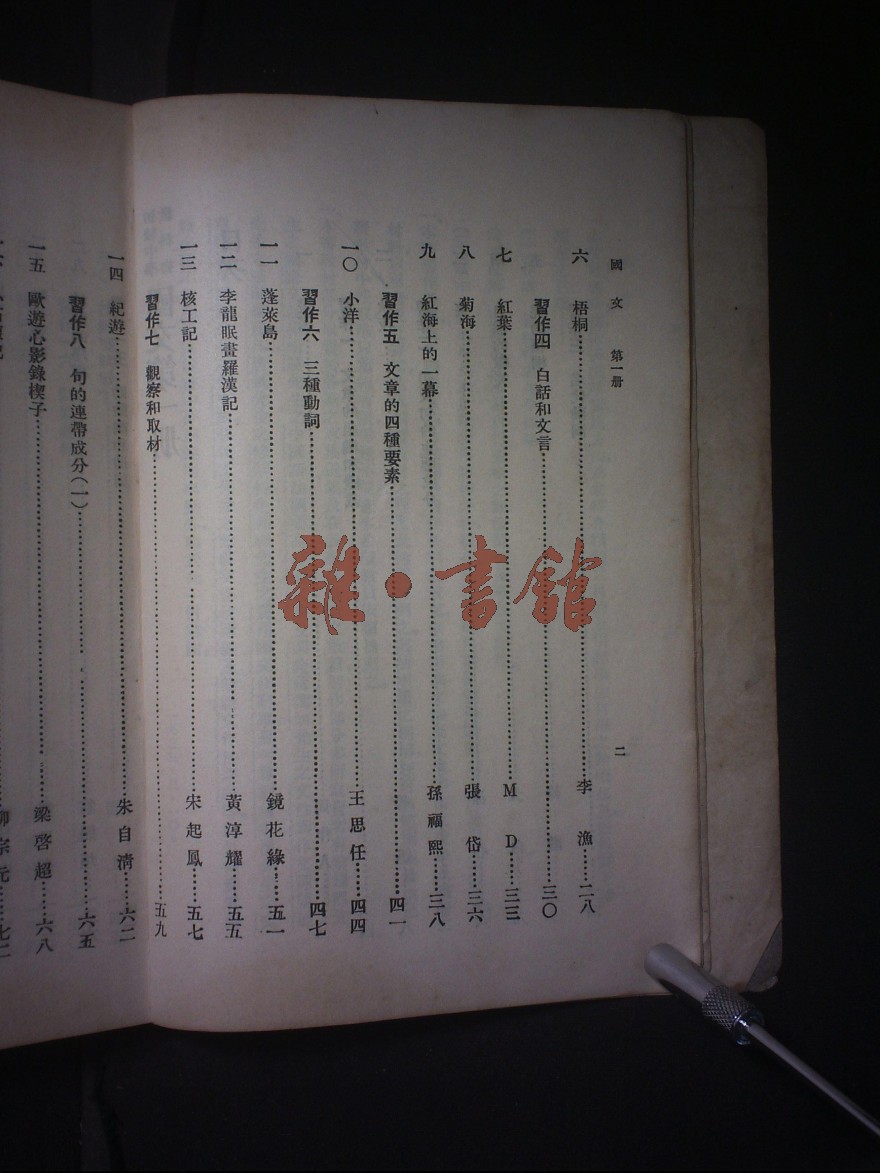 國文 第一册
二
六 梧桐……李漁……二八
習作四 白話和文言……三〇
七 紅葉……M D……三三
八 菊海……張岱……三六
九 紅海上的一幕……孫福熙……三八
習作五 文章的四種要素……四一
一〇 小洋……王思任……四四
習作六 三種動詞……四七
一一 蓬萊島……鏡花緣……五一
一二 李龍眠畫羅漢記……黃淳耀……五五
一三 核工記……宋起鳳……五七
習作七 觀察和取材……五九
一四 紀遊……朱自清……六二
習作八 句的連帶成分(一)……六五
一五 歐遊心影錄楔子……梁啓超……六八
柳宗元……七二
雜·書館